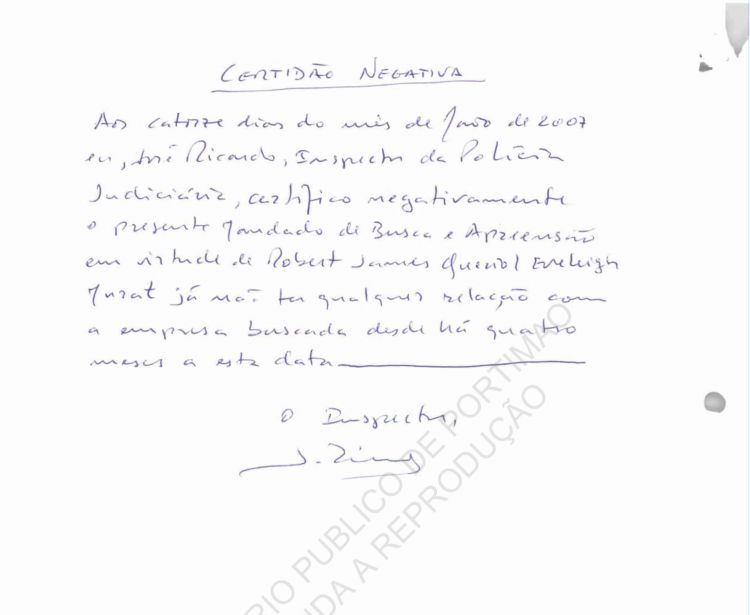 CERTIDÃO NEGATIVA
Aos catorze dias do mês de Maio de 2007
eu, José Ricardo, Inspector da Polícia
Judiciária, certifico negativamente
o presente Mandado de Busca e Apreensão
em virtude de Robert James Queriol Eveleigh
Murat já não ter qualquer relação com
a empresa buscada desde há quatro
meses a esta data
O Inspector,
RIO PUBLICO DE PORTIMAO
DA A REPRODUÇÃO